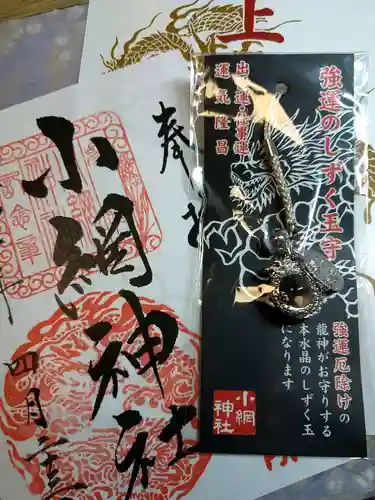 上
奉拝
小網神社
四月
強運のしずく玉守
出世運・仕事運
運気隆昌
強運厄除けの
龍神がお守りする
本水晶のしずく玉
になります
小網
神社